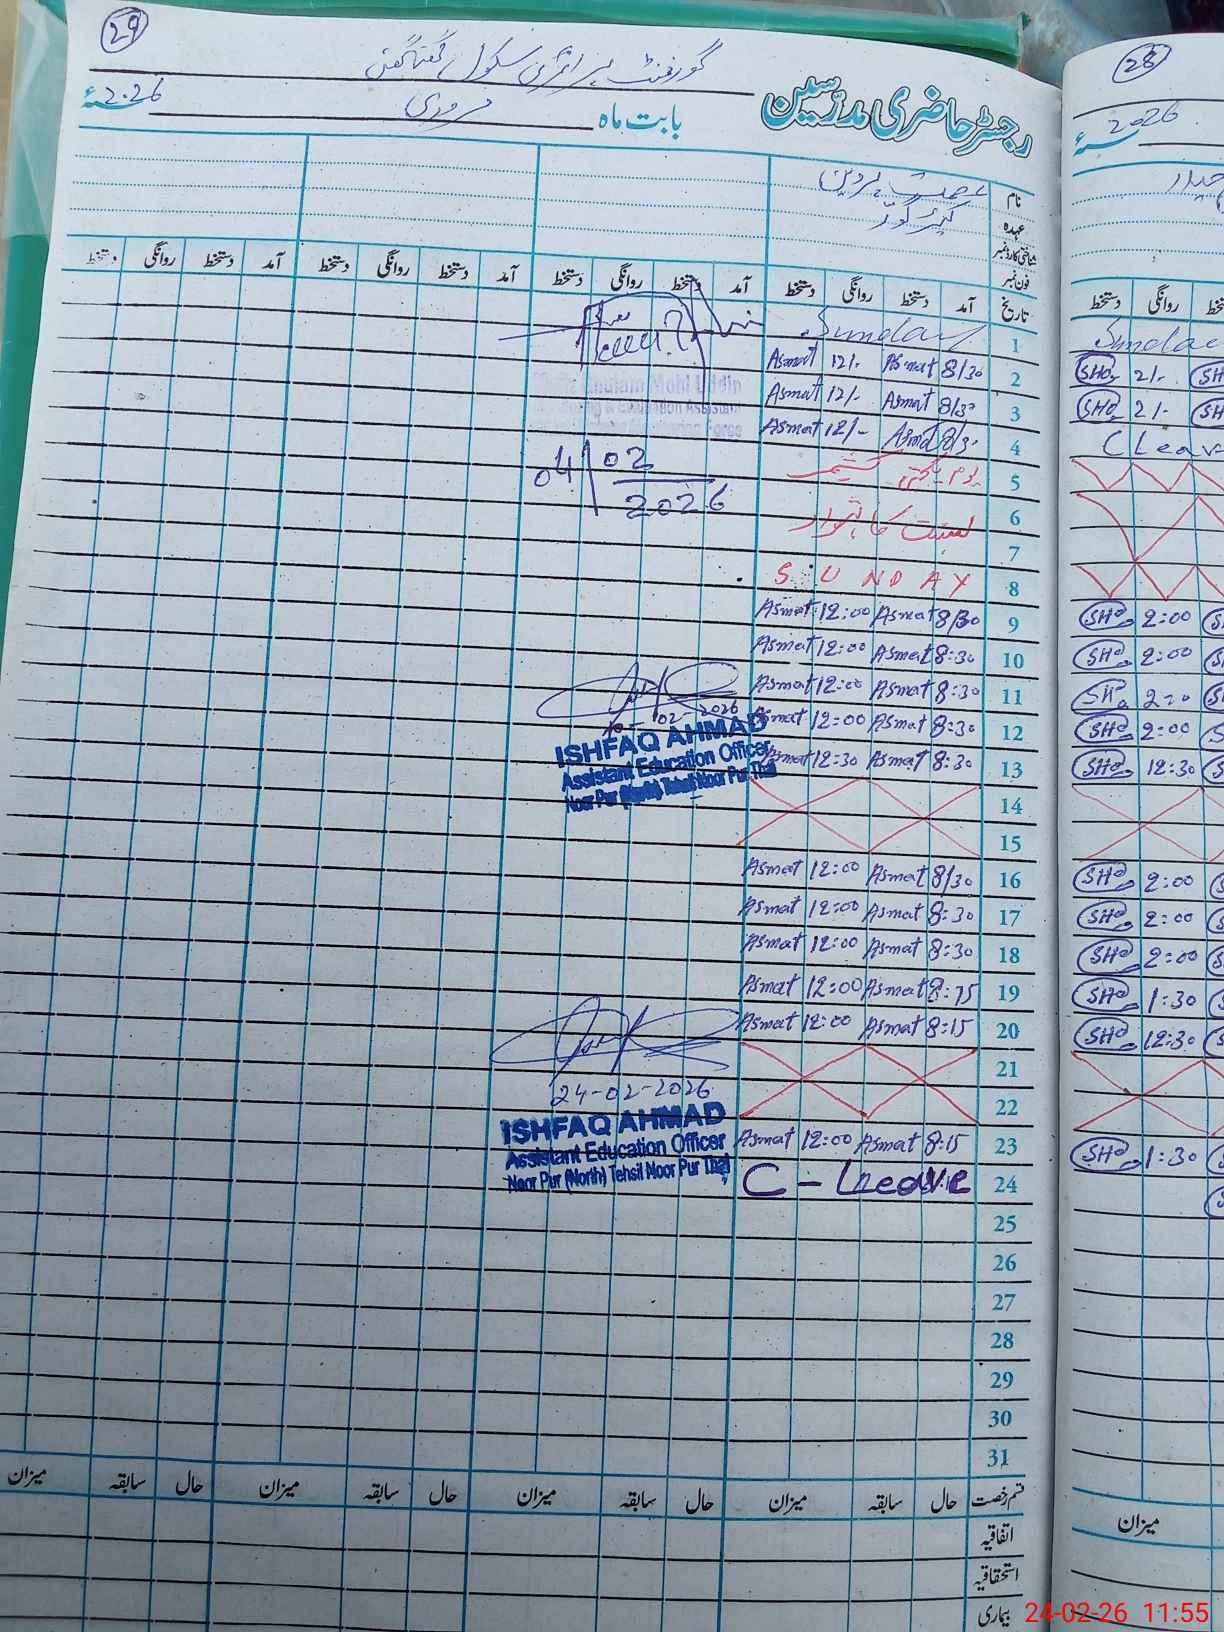 29
گورنمنٹ پرائمری سکول
رجسٹر حاضری مدرسین
بابت ماہ فروری 2026ء
نام عصمت پروین
عہدہ کیئر گور
شناختی کارڈ نمبر
فون نمبر
تاریخ آمد دستخط روانگی دستخط آمد دستخط روانگی دستخط آمد دستخط روانگی دستخط آمد دستخط روانگی دستخط
1 Sunday
2 8/30 Asmat 12/- Asmat
3 8/30 Asmat 12/- Asmat
4 8/30 Asmat 12/- Asmat
Ghulam Mohi Uddin
04/02/2026
5 یوم یکجہتی کشمیر
6 بسنت کا تہوار
7
8 SUNDAY
9 8/30 Asmat 12:00 Asmat
10 8:30 Asmat 12:00 Asmat
11 8:30 Asmat 12:00 Asmat
12 8:30 Asmat 12:00 Asmat
13 8:30 Asmat 12:30 Asmat
ISHFAQ AHMAD
Assistant Education Officer
Noor Pur (North) Tehsil Noor Pur Thal
14
15
16 8/30 Asmat 12:00 Asmat
17 8:30 Asmat 12:00 Asmat
18 8:30 Asmat 12:00 Asmat
19 8:15 Asmat 12:00 Asmat
20 8:15 Asmat 12:00 Asmat
21
22
24-02-2026
ISHFAQ AHMAD
Assistant Education Officer
Noor Pur (North) Tehsil Noor Pur Thal
23 8:15 Asmat 12:00 Asmat
24 C - Leave
25
26
27
28
29
30
31
قسم رخصت حال سابقہ میزان حال سابقہ میزان حال سابقہ میزان حال سابقہ میزان
اتفاقیہ
استحقاقیہ
بیماری
28
2026ء
روانگی دستخط
Sunday
2/-
2/-
C Leav
2:00
2:00
2:00
2:00
12:30
2:00
2:00
2:00
1:30
12:30
1:30
میزان
24-02-26 11:55